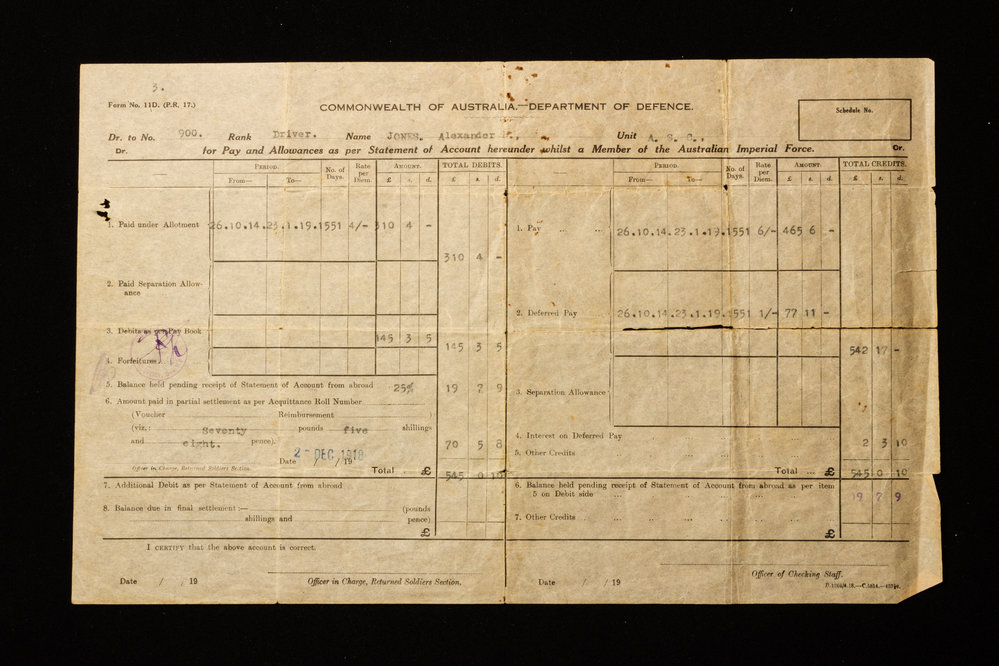 3.
Form No. 11D. (P.R. 17.)
COMMONWEALTH OF AUSTRALIA.—DEPARTMENT OF DEFENCE.
Schedule No.
Dr. to No. 900. Rank Driver. Name JONES. Alexander Unit A. S. C.,
Dr. for Pay and Allowances as per Statement of Account hereunder whilst a Member of the Australian Imperial Force. Cr.
PERIOD. No. of Days. Rate per Diem. AMOUNT. TOTAL DEBITS.
From— To— £ s. d. £ s. d.
1. Paid under Allotment 26.10.14. 23.1.19. 1551 4/- 310 4 -
310 4 -
2. Paid Separation Allow-
ance
3. Debits as per Pay Book
145 3 5
145 3 5
4. Forfeitures
5. Balance held pending receipt of Statement of Account from abroad 25% 19 7 9
6. Amount paid in partial settlement as per Acquittance Roll Number
(Voucher Reimbursement )
(viz.: Seventy pounds five shillings
and eight. pence). 70 5 8
2- DEC 1918
Date / /19
Officer in Charge, Returned Soldiers Section.
Total £ 545 0 10
7. Additional Debit as per Statement of Account from abroad
8. Balance due in final settlement :— (pounds
shillings and pence)
£
I CERTIFY that the above account is correct.
Date / /19 Officer in Charge, Returned Soldiers Section.
PERIOD. No. of Days. Rate per Diem. AMOUNT. TOTAL CREDITS.
From— To— £ s. d. £ s. d.
1. Pay ... ... 26.10.14. 23.1.19. 1551 6/- 465 6 -
2. Deferred Pay 26.10.14. 23.1.19. 1551 1/- 77 11 -
542 17 -
3. Separation Allowance
4. Interest on Deferred Pay 2 3 10
5. Other Credits
Total ... £ 545 0 10
6. Balance held pending receipt of Statement of Account from abroad as per item
5 on Debit side 19 7 9
7. Other Credits
£
Officer of Checking Staff.
Date / /19